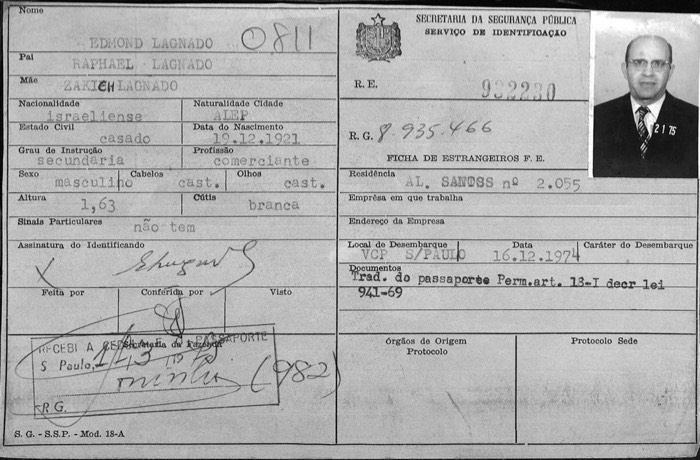 Nome
EDMOND LAGNADO
0811
Pai
RAPHAEL LAGNADO
Mãe
ZAKIEH LAGNADO
Nacionalidade
Naturalidade Cidade
israeliense
ALEP
Estado Civil
Data do Nascimento
casado
19.12.1921
Grau de Instrução
Profissão
secundaria
comerciante
Sexo
Cabelos
Olhos
masculino
cast.
cast.
Altura
Cútis
1,63
branca
Sinais Particulares
não tem
Assinatura do Identificando
X
Feita por
Conferida por
Visto
Secretaria da Fazenda
RECEBI A
E O PASSAPORTE
S Paulo,
(982)
R G.
S. G. - S.S.P. - Mod. 18-A
SECRETARIA DA SEGURANÇA PÚBLICA
SERVIÇO DE IDENTIFICAÇÃO
R. E.
R. G. 8.935.466
FICHA DE ESTRANGEIROS F. E.
2 1 75
Residência
AL. SANTSS nº 2.055
Emprêsa em que trabalha
Endereço da Empresa
Local do Desembarque
Data
Caráter do Desembarque
VCP S/PAULO
16.12.1974
Documentos
Trad. do passaporte Perm.art. 13-I decr lei
941-69
Órgãos de Origem
Protocolo
Protocolo Sede